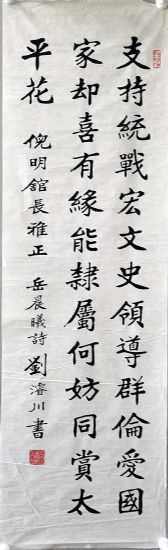 支持統戰宏文史領導群倫愛國
家却喜有緣能隸屬何妨同賞太
平花
倪明舘長雅正 岳晨曦詩 劉濬川書